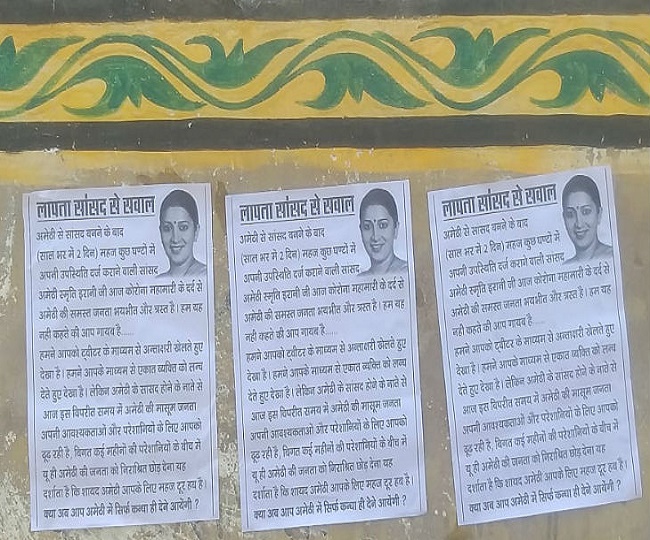 लापता सांसद से सवाल
अमेठी से सांसद बनने के बाद
(साल भर में 2 दिन) महज कुछ घण्टों में
अपनी उपस्थिति दर्ज कराने वाली सांसद
अमेठी स्मृति इरानी जी आज कोरोना महामारी के दर्द से
अमेठी की समस्त जनता भयभीत और त्रस्त है। हम यह
नही कहते की आप गायब है......
हमने आपको ट्वीटर के माध्यम से अन्ताक्षरी खेलते हुए
देखा है। हमने आपके माध्यम से एकात व्यक्ति को लन्च
देते हुए देखा है। लेकिन अमेठी के सांसद होने के नाते से
आज इस विपरीत समय में अमेठी की मासूम जनता
अपनी आवश्यकताओं और परेशानियो के लिए आपको
ढूढ रही है, विगत कई महीनो की परेशानियो के बीच में
यू ही अमेठी की जनता को निराश्रित छोड़ देना यह
दर्शाता है कि शायद अमेठी आपके लिए महज टूर हब है।
क्या अब आप अमेठी में सिर्फ कन्धा ही देने आयेंगी ?
लापता सांसद से सवाल
अमेठी से सांसद बनने के बाद
(साल भर में 2 दिन) महज कुछ घण्टों में
अपनी उपस्थिति दर्ज कराने वाली सांसद
अमेठी स्मृति इरानी जी आज कोरोना महामारी के दर्द से
अमेठी की समस्त जनता भयभीत और त्रस्त है। हम यह
नही कहते की आप गायब है......
हमने आपको ट्वीटर के माध्यम से अन्ताक्षरी खेलते हुए
देखा है। हमने आपके माध्यम से एकात व्यक्ति को लन्च
देते हुए देखा है। लेकिन अमेठी के सांसद होने के नाते से
आज इस विपरीत समय में अमेठी की मासूम जनता
अपनी आवश्यकताओं और परेशानियो के लिए आपको
ढूढ रही है, विगत कई महीनो की परेशानियो के बीच में
यू ही अमेठी की जनता को निराश्रित छोड़ देना यह
दर्शाता है कि शायद अमेठी आपके लिए महज टूर हब है।
क्या अब आप अमेठी में सिर्फ कन्धा ही देने आयेंगी ?
लापता सांसद से सवाल
अमेठी से सांसद बनने के बाद
(साल भर में 2 दिन) महज कुछ घण्टों में
अपनी उपस्थिति दर्ज कराने वाली सांसद
अमेठी स्मृति इरानी जी आज कोरोना महामारी के दर्द से
अमेठी की समस्त जनता भयभीत और त्रस्त है। हम यह
नही कहते की आप गायब है......
हमने आपको ट्वीटर के माध्यम से अन्ताक्षरी खेलते हुए
देखा है। हमने आपके माध्यम से एकात व्यक्ति को लन्च
देते हुए देखा है। लेकिन अमेठी के सांसद होने के नाते से
आज इस विपरीत समय में अमेठी की मासूम जनता
अपनी आवश्यकताओं और परेशानियो के लिए आपको
ढूढ रही है, विगत कई महीनो की परेशानियो के बीच में
यू ही अमेठी की जनता को निराश्रित छोड़ देना यह
दर्शाता है कि शायद अमेठी आपके लिए महज टूर हब है।
क्या अब आप अमेठी में सिर्फ कन्धा ही देने आयेंगी ?